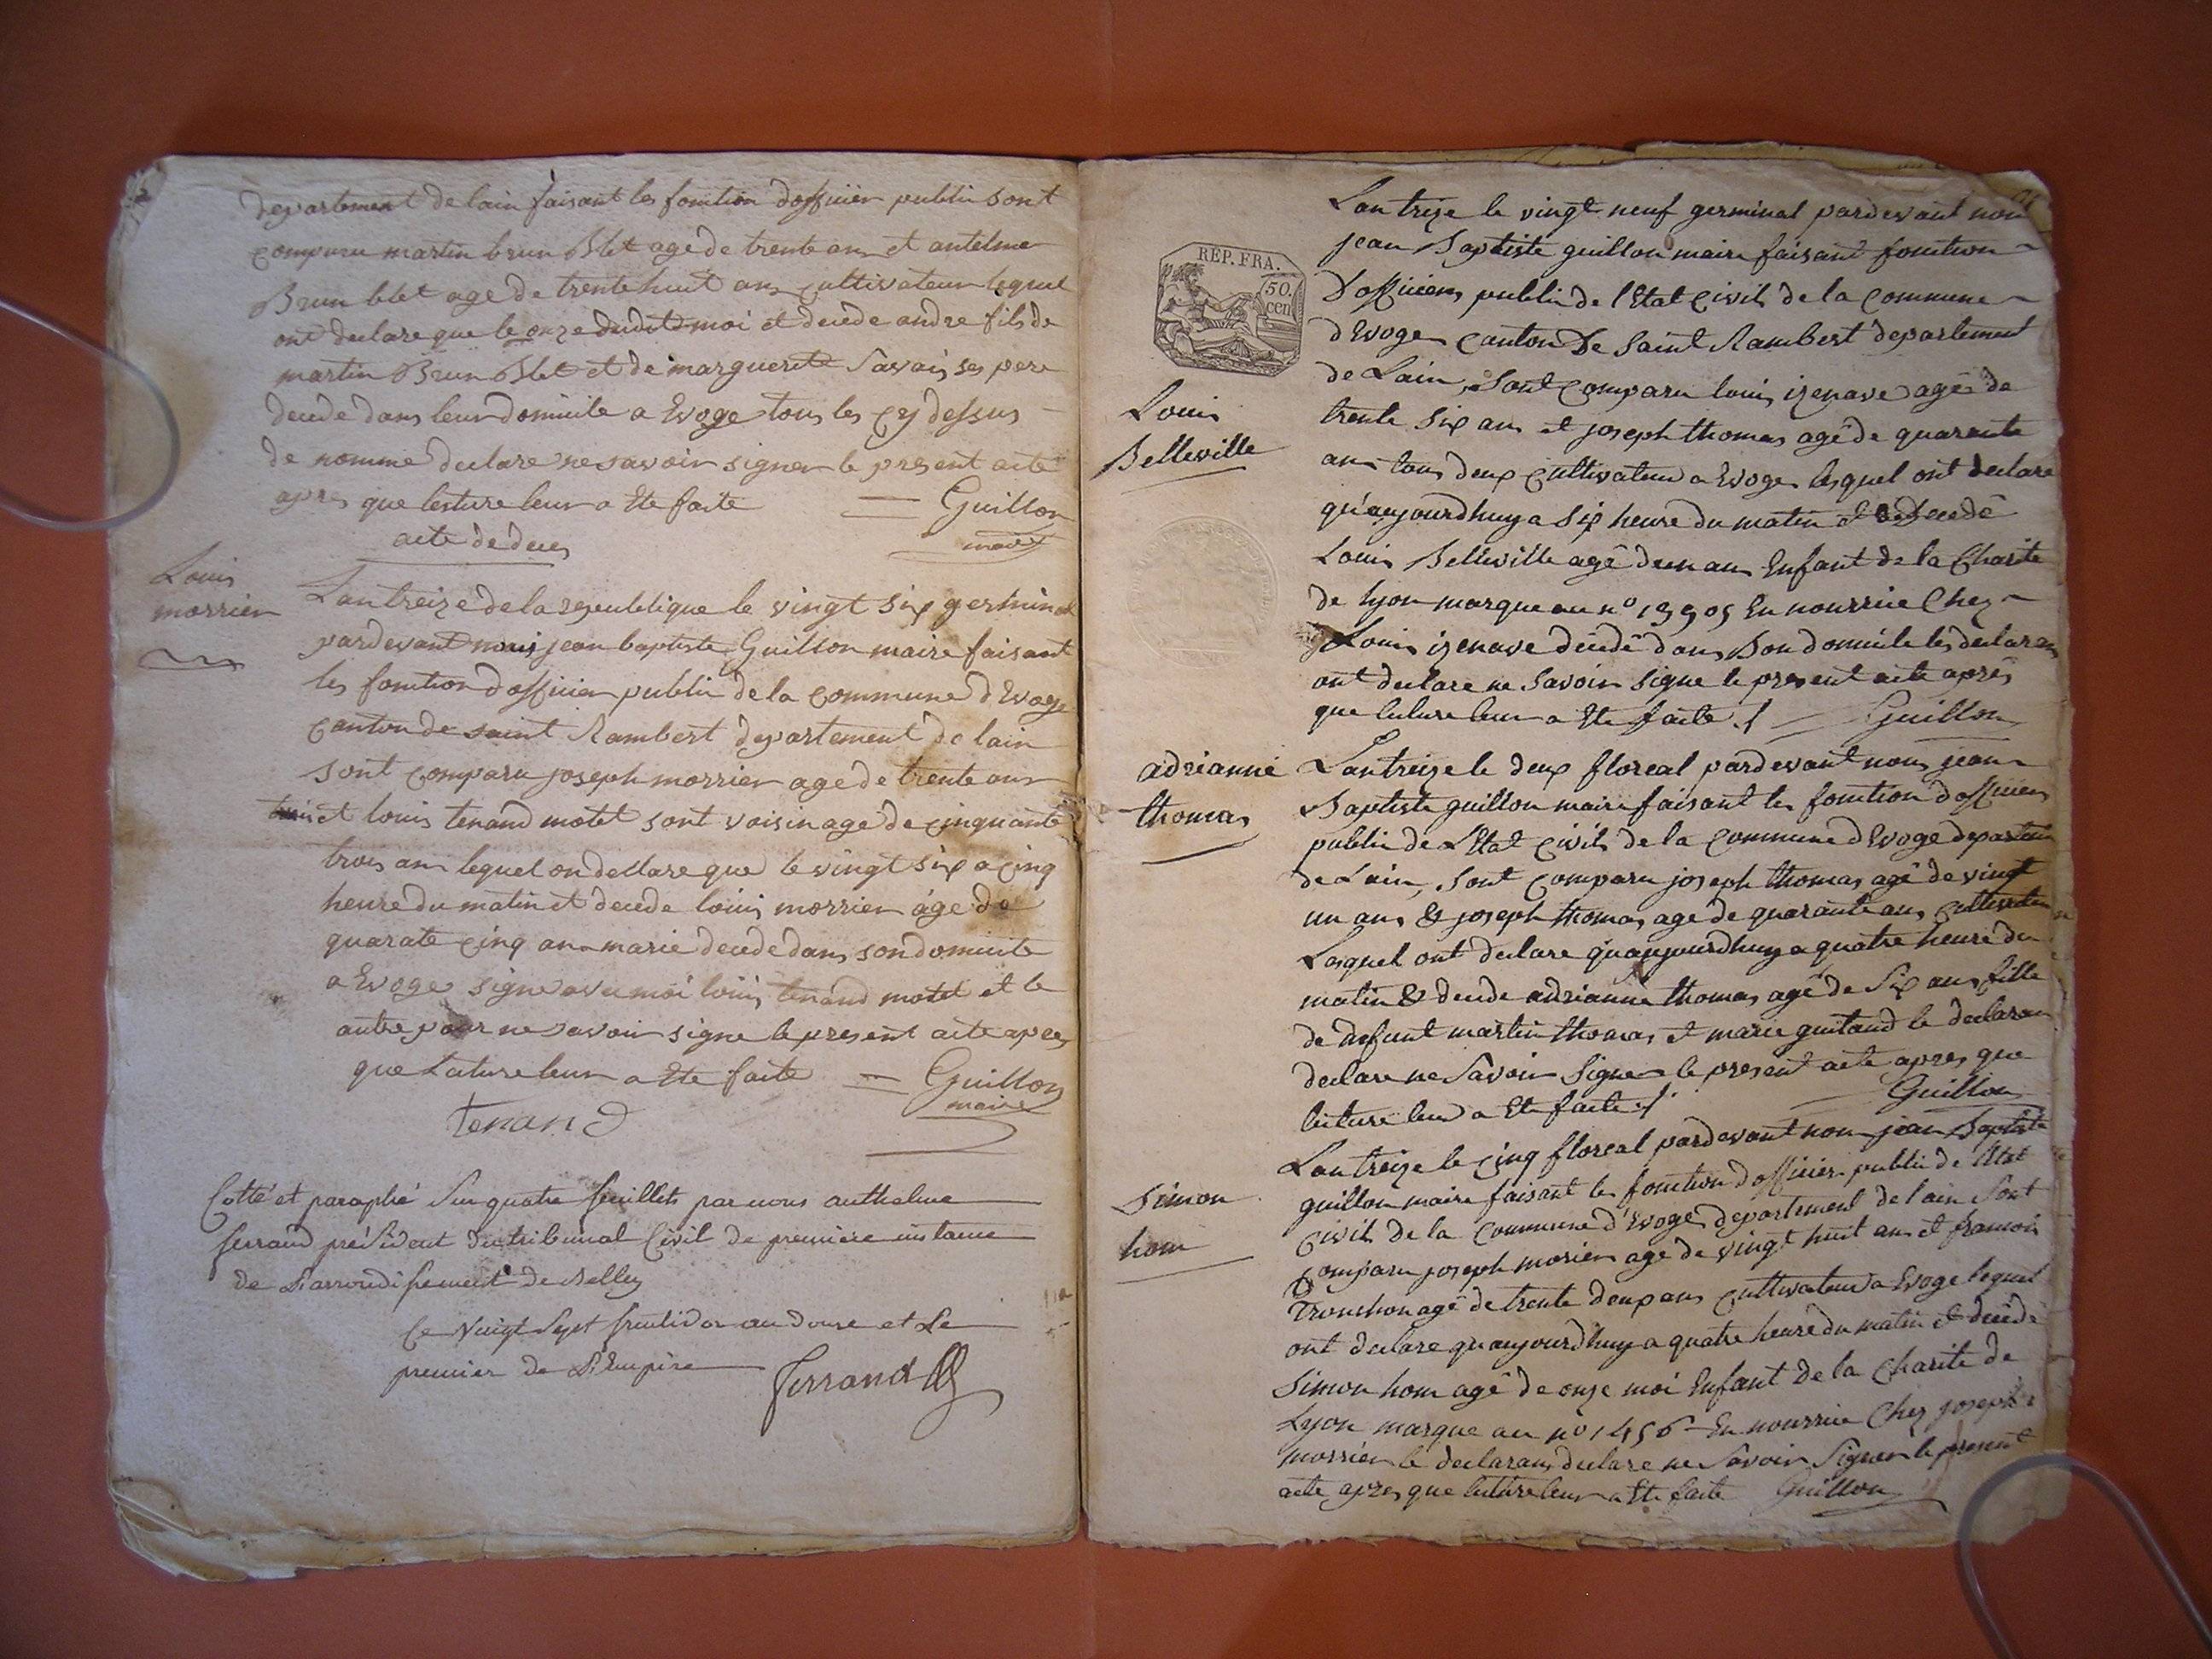 departement de lain faisant les fonction dofficier public sont
comparu martin brun Blet age de trente ans et antelme
Brun blet age de trente huit ans cultivateur lequel
ont declare que le onze dudit moi et decede andre fils de
martin Brun Blet et de marguerite Savais ses pere
decede dans leur domicile a Evoge tous les cy dessus
de nomme declare ne savoir signer le present acte
apres que lecture leur a Ete faite — Guillon
maire
acte de deces
Louis
morrier
Lan treize de la republique le vingt six germinal
pardevant nous jean baptiste Guillon maire faisant
les fonction dofficier public de la commune d Evoge
canton de saint Rambert departement de lain
sont comparu joseph morrier age de trente ans
et louis tenand motet sont voisin age de cinquante
trois ans lequel on declare que le vingt six a cinq
heure du matin et decede louis morrier âge de
quarate cinq an marie decede dans son domicile
a Evoge signe avec moi louis tenand motet et le
autre pour ne savoir signe le present acte apres
que Lature leur a Ete faite — Guillon
maire
Tenand
Cotté et paraphé Sur quatre feuillets par nous anthelme
ferrand président du tribunal Civil de premiere instance
de L'arrondissement de Belley
Ce Vingt Sept fructidor an douze et Le
premier de L'Empire ferrand
REP. FRA.
50.
cen
Louis
Belleville
Lan treize le vingt neuf germinal pardevant nou
jean Baptiste guillon maire faisant fonction
Dofficiers public de l'Etat civil de la commune
d Evoge canton De Saint Rambert departement
de Lain, Sont comparu louis izenave agê de
trente Six ans et joseph thomas agê de quarante
ans tous deux cultivateur a Evoge lesquel ont declare
qu'aujourdhuy a six heure du matin et decedê
Louis Belleville agê d'un ans Enfant de la Charite
de lyon marque au n° 13905 En nourrice Chez
Louis izenave décédê dans Son domicile les declarans
ont declare ne Savoir signe le present acte aprês
que luture leur a Ete faite ./. Guillon
adrianne
thomas
Lan treize le deux floreal pardevant nous jean
Baptiste guillon maire faisant les fonction dofficier
public de LEtat civil de la commune d Evoge departem
de Lain, Sont comparu joseph thomas agê de vingt
un ans & joseph thomas age de quarante ans cultivateur
Lesquel ont declare qu'aujourdhuy a quatre heure du
matin & decede adrianne thomas agê de Six ans fille
de defunt martin thomas et marie guitand le declaran
declare ne Savoir Signer le present acte apres que
luture leur a Ete faite ./. Guillon
Simon
hom
Lan treize le cinq floreal pardevant nou jean Baptiste
guillon maire faisant les fonction dofficier public de lEtat
civil de la commune d'Evoge departement de lain Sont
comparu joseph morier age de vingt huit ans et francois
Tronchon agê de trente deux ans cultivateur a Evoge lequel
ont declare qu'aujourdhuy a quatre heure du matin et décédê
Simon hom agê de onze moi Enfant de la Charite de
Lyon marque au n° 1456 En nourrice Chez joseph
morrier le declarans declare ne Savoir Signer le present
acte apres que luture leur a Ete faite Guillon